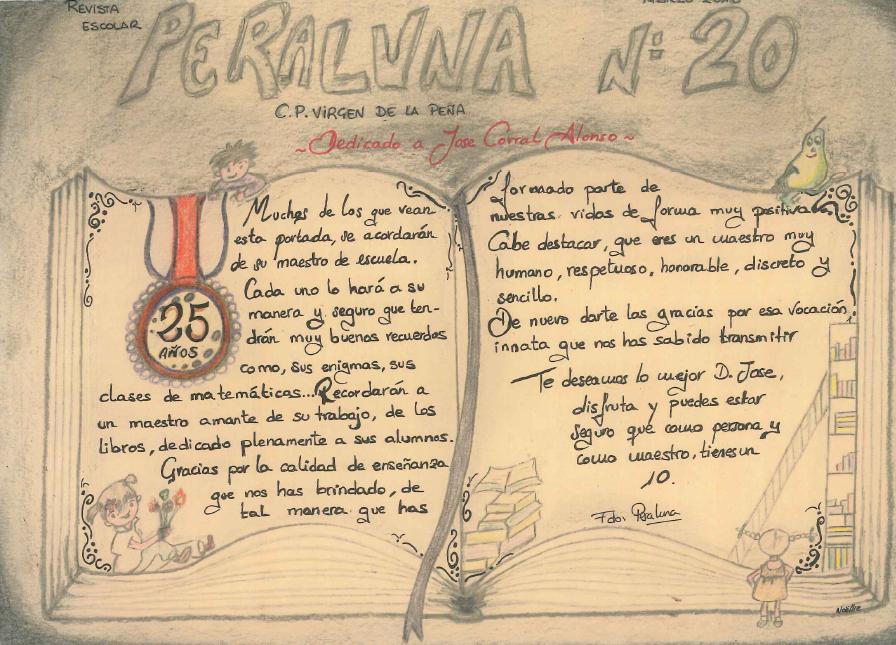 REVISTA
ESCOLAR
PERALUNA Nº 20
C.P. VIRGEN DE LA PEÑA
~Dedicado a Jose Corral Alonso~
25
AÑOS
Muchos de los que vean
esta portada, se acordarán
de su maestro de escuela.
Cada uno lo hará a su
manera y seguro que ten-
drán muy buenos recuerdos
como, sus enigmas, sus
clases de matemáticas...Recordarán a
un maestro amante de su trabajo, de los
libros, dedicado plenamente a sus alumnos.
Gracias por la calidad de enseñanza
que nos has brindado, de
tal manera que has
formado parte de
nuestras vidas de forma muy positiva
Cabe destacar, que eres un maestro muy
humano, respetuoso, honorable, discreto y
sencillo.
De nuevo darte las gracias por esa vocación
innata que nos has sabido transmitir
Te deseamos lo mejor D. Jose,
disfruta y puedes estar
seguro que como persona y
como maestro, tienes un
10.
Fdo: Peraluna